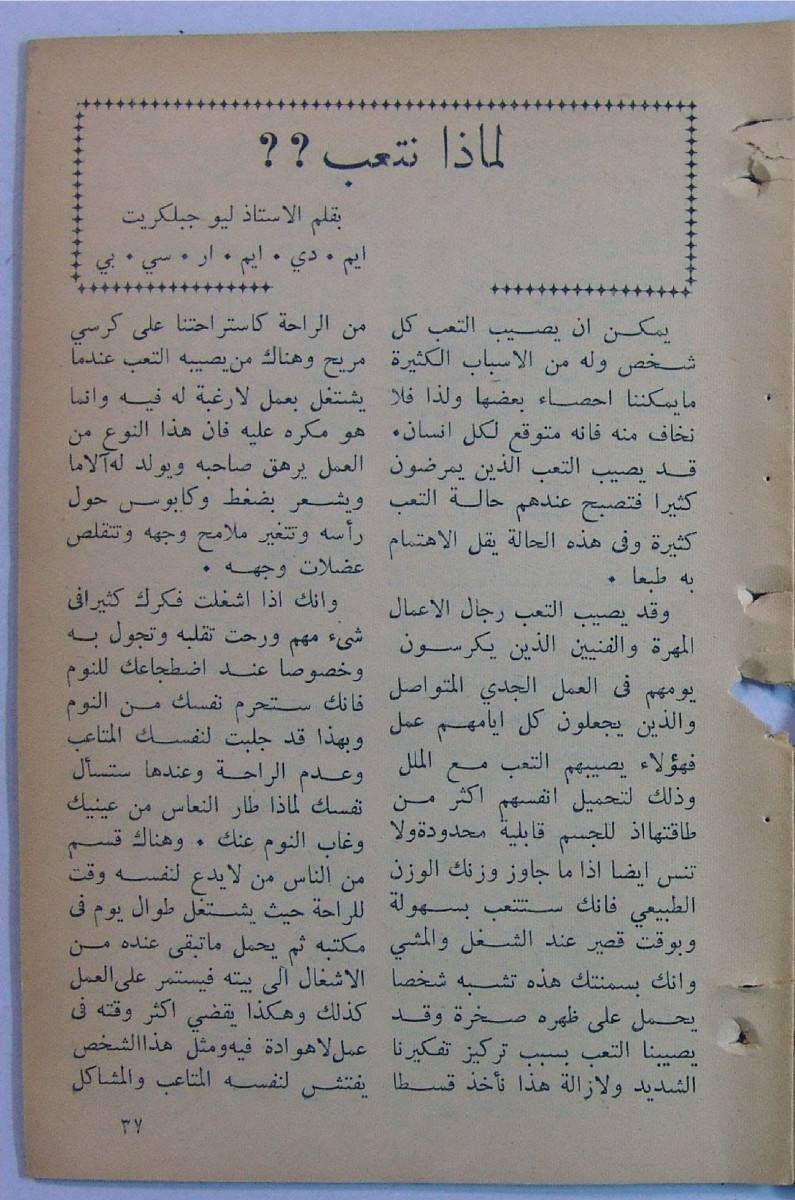 لماذا نتعب ؟؟
بقلم الاستاذ ليو جبلكريت
ايم ٠ دي ٠ ايم ٠ ار ٠ سي ٠ بي
يمكن ان يصيب التعب كل
شخص وله من الاسباب الكثيرة
مايمكننا احصاء بعضها ولذا فلا
نخاف منه فانه متوقع لكل انسان٠
قد يصيب التعب الذين يمرضون
كثيرا فتصبح عندهم حالة التعب
كثيرة وفى هذه الحالة يقل الاهتمام
به طبعا ٠
وقد يصيب التعب رجال الاعمال
المهرة والفنيين الذين يكرسون
يومهم فى العمل الجدي المتواصل
والذين يجعلون كل ايامهم عمل
فهؤلاء يصيبهم التعب مع الملل
وذلك لتحميل انفسهم اكثر من
طاقتهااذ للجسم قابلية محدودةولا
تنس ايضا اذا ما جاوز وزنك الوزن
الطبيعي فانك ستتعب بسهولة
وبوقت قصير عند الشغل والمشي
وانك بسمنتك هذه تشبه شخصا
يحمل على ظهره صخرة وقد
يصيبنا التعب بسبب تركيز تفكيرنا
الشديد ولازالة هذا نأخذ قسطا
من الراحة كاستراحتنا على كرسي
مريح وهناك من يصيبه التعب عندما
يشتغل بعمل لارغبة له فيه وانما
هو مكره عليه فان هذا النوع من
العمل يرهق صاحبه ويولد لهآلاما
ويشعر بضغط وكابوس حول
رأسه وتتغير ملامح وجهه وتتقلص
عضلات وجهه ٠
وانك اذا اشغلت فكرك كثيرافى
شىء مهم ورحت تقلبه وتجول به
وخصوصا عند اضطجاعك للنوم
فانك ستحرم نفسك من النوم
وبهذا قد جلبت لنفسك المتاعب
وعدم الراحة وعندها ستسأل
نفسك لماذا طار النعاس من عينيك
وغاب النوم عنك ٠ وهناك قسم
من الناس من لايدع لنفسه وقت
للراحة حيث يشتغل طوال يوم فى
مكتبه ثم يحمل ماتبقى عنده من
الاشغال الى بيته فيستمر علىالعمل
كذلك وهكذا يقضي اكثر وقته فى
عمل لاهوادة فيهومثل هذاالشخص
يفتش لنفسه المتاعب والمشاكل
٣٧